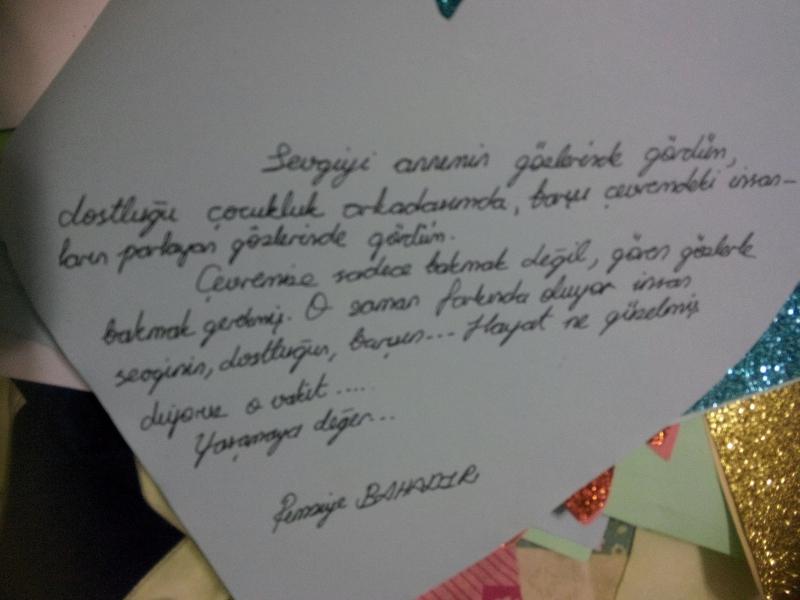 Sevgiyi annemin gözlerinde gördüm,
dostluğu çocukluk arkadaşımda, barışı çevremdeki insan-
ların parlayan gözlerinde gördüm.
Çevremize sadece bakmak değil, gören gözlerle
bakmak gerekmiş. O zaman farkında oluyor insan
sevginin, dostluğun, barışın... Hayat ne güzelmiş
diyoruz o vakit....
Yaşamaya değer...
BAHADIR